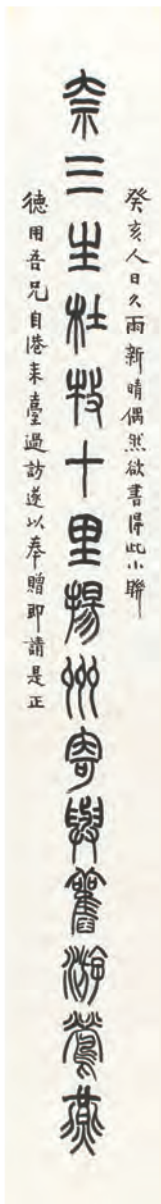 癸亥人日久雨新晴偶然欲書得此小聯
奈三生杜牧十里揚州寄與舊游鶯燕
德用吾兄自港来臺過訪遂以奉贈即請是正